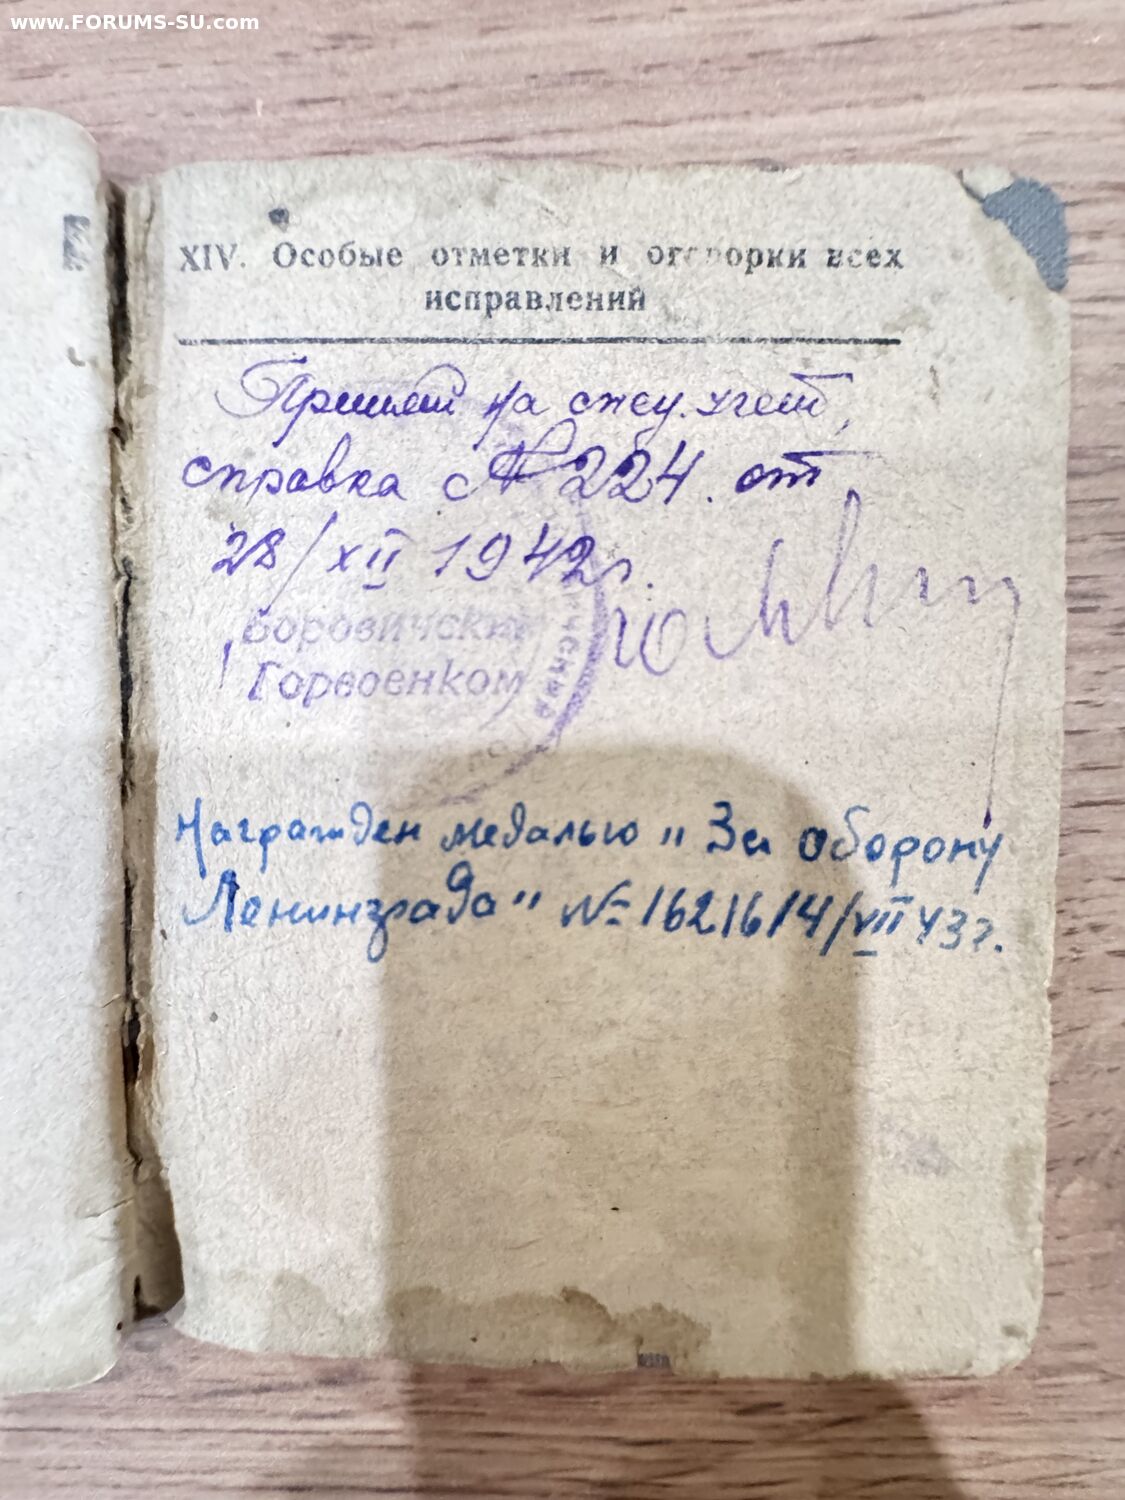 www.FORUMS-SU.com
XIV. Особые отметки и оговорки всех
исправлений
на учет,
справка № 224. от
28/XII 1942г.
Боровичский
Горвоенком
Награжден медалью "За оборону
Ленинграда" № 16216 14/VII 43г.